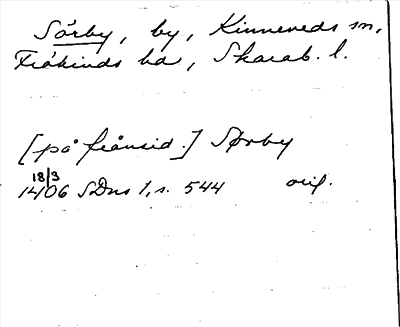 Sörby, by, Kinneveds sn,
Frökinds hd, Skarab. l.
[på frånsid.] Sørby
18/3
1406 SDns 1, s. 544 orig.